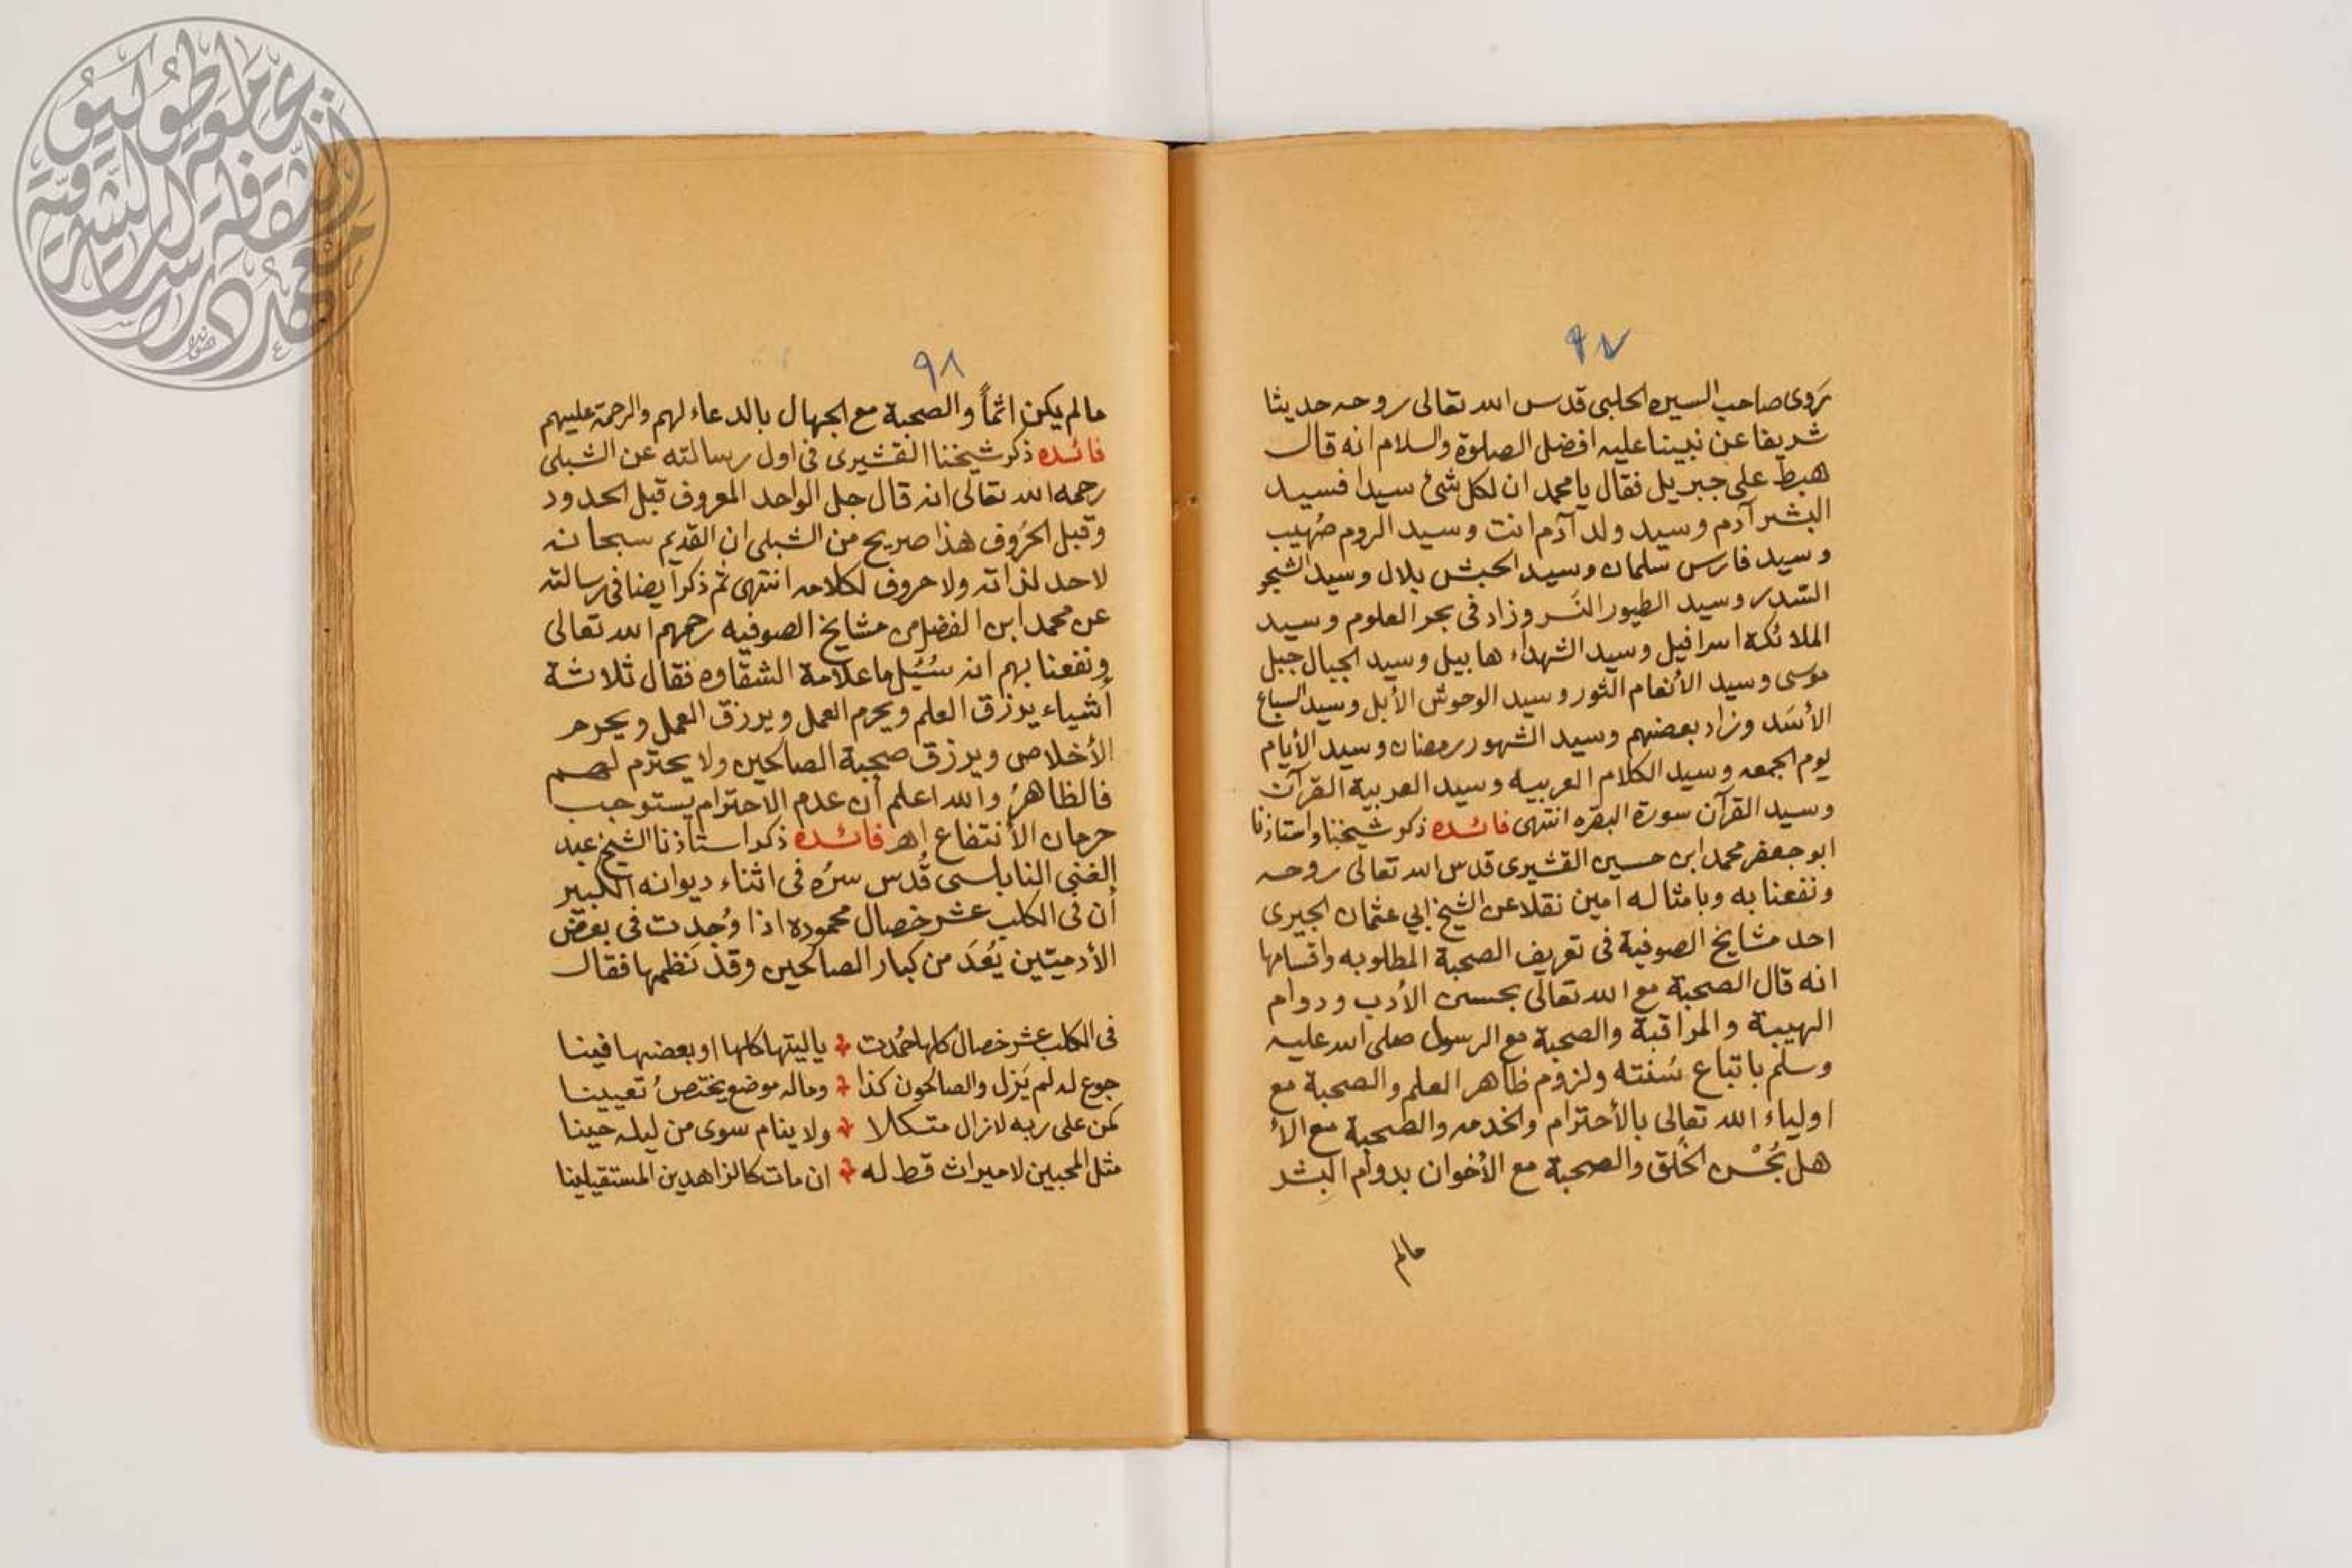 ٩٧
يَروى صاحب السيره الحلبى قدس الله تعالى روحه حديثا
شريفا عن نبينا عليه افضل الصلوة والسلام انه قال
هبط على جبريل فقال يا محمد ان لكل شئ سيدا فسيد
البشر آدم وسيد ولد آدم انت وسيد الروم صُهيب
وسيد فارس سلمان وسيد الحبش بلال وسيد الشجر
السّدر وسيد الطيور النَسر وزاد فى بحر العلوم وسيد
الملائكة اسرافيل وسيد الشهداء هابيل وسيد الجبال جبل
موسى وسيد الأنعام الثور وسيد الوحوش الأبل وسيد السباع
الأسَد وزاد بعضهم وسيد الشهور رمضان وسيد الأيام
يوم الجمعه وسيد الكلام العربيه وسيد العربية القرآن
وسيد القرآن سورة البقره انتهى فائده ذكر شيخنا واستاذنا
ابو جعفر محمد ابن حسين القشيرى قدس الله تعالى روحه
ونفعنا به وبامثاله امين نقلا عن الشيخ ابي عثمان الحيرى
احد مشايخ الصوفية فى تعريف الصحبة المطلوبه واقسامها
انه قال الصحبة مع الله تعالى بحسن الأدب ودوام
الهيبة والمراقبة والصحبة مع الرسول صلى الله عليه
وسلم باتباع سُنته ولزوم ظاهر العلم والصحبة مع
اولياء الله تعالى بالأحترام والخدمه والصحبة مع الأ
هل بحُسْن الخُلق والصحبة مع الأخوان بدوام البشر
مالم
٩٨
مالم يكن اثماً والصحبة مع الجهال بالدعاء لهم والرحمة عليهم
فائده ذكر شيخنا القشيرى فى اول رسالته عن الشبلى
رحمه الله تعالى انه قال جل الواحد المعروف قبل الحدود
وقبل الحُروف هذا صريح من الشبلى ان القديم سبحانه
لا حد لذاته ولا حروف لكلامه انتهى ثم ذكر أيضا فى رسالته
عن محمد ابن الفضل من مشايخ الصوفيه رحمهم الله تعالى
ونفعنا بهم انه سُئِل ما علامة الشقاوه فقال ثلاثة
أشياء يرزق العلم ويحرم العمل ويرزق العمل ويحرم
الأخلاص ويرزق صحبة الصالحين ولا يحترم لهم
فالظاهرُ والله اعلم أن عدم الاحترام يستوجب
حرمان الأنتفاع اهـ فائده ذكر استاذنا الشيخ عبد
الغنى النابلسى قُدس سرُه فى اثناء ديوانه الكبير
أن فى الكلب عشر خصال محموده اذا وُجدت فى بعض
الأدميّين يُعدَ من كبار الصالحين وقد نَظمها فقال
فى الكلب عشر خصال كلها حُمدت ٭ يا ليتها كلها او بعضها فينا
جوع له لم يَزل والصالحون كذا ٭ وماله موضع يختصُ تعيينا
كمن على ربه لازال متكلا ٭ ولا ينام سوى من ليله حينا
مثل المحبين لا ميراث قط له ٭ ان مات كالزاهدين المستقيلينا